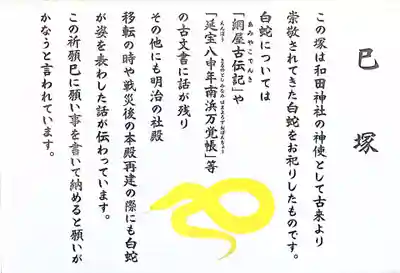 巳塚
この塚は和田神社の神使として古来より
崇敬されてきた白蛇をお祀りしたものです。
白蛇については
「網屋古伝記」や
「延宝八申年南浜万覚帳」等
の古文書に話が残り
その他にも明治の社殿
移転の時や戦災後の本殿再建の際にも白蛇
が姿を表わした話が伝わっています。
この祈願巳に願い事を書いて納めると願いが
かなうと言われています。